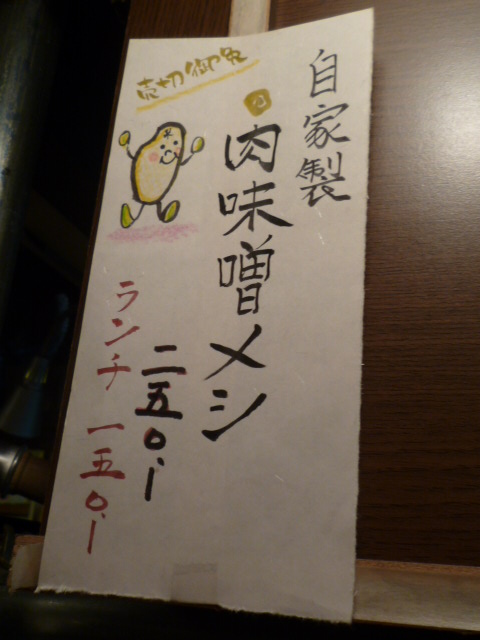 自家製
肉味噌メシ
二五〇、ー
売切御免
ランチ 一五〇、ー